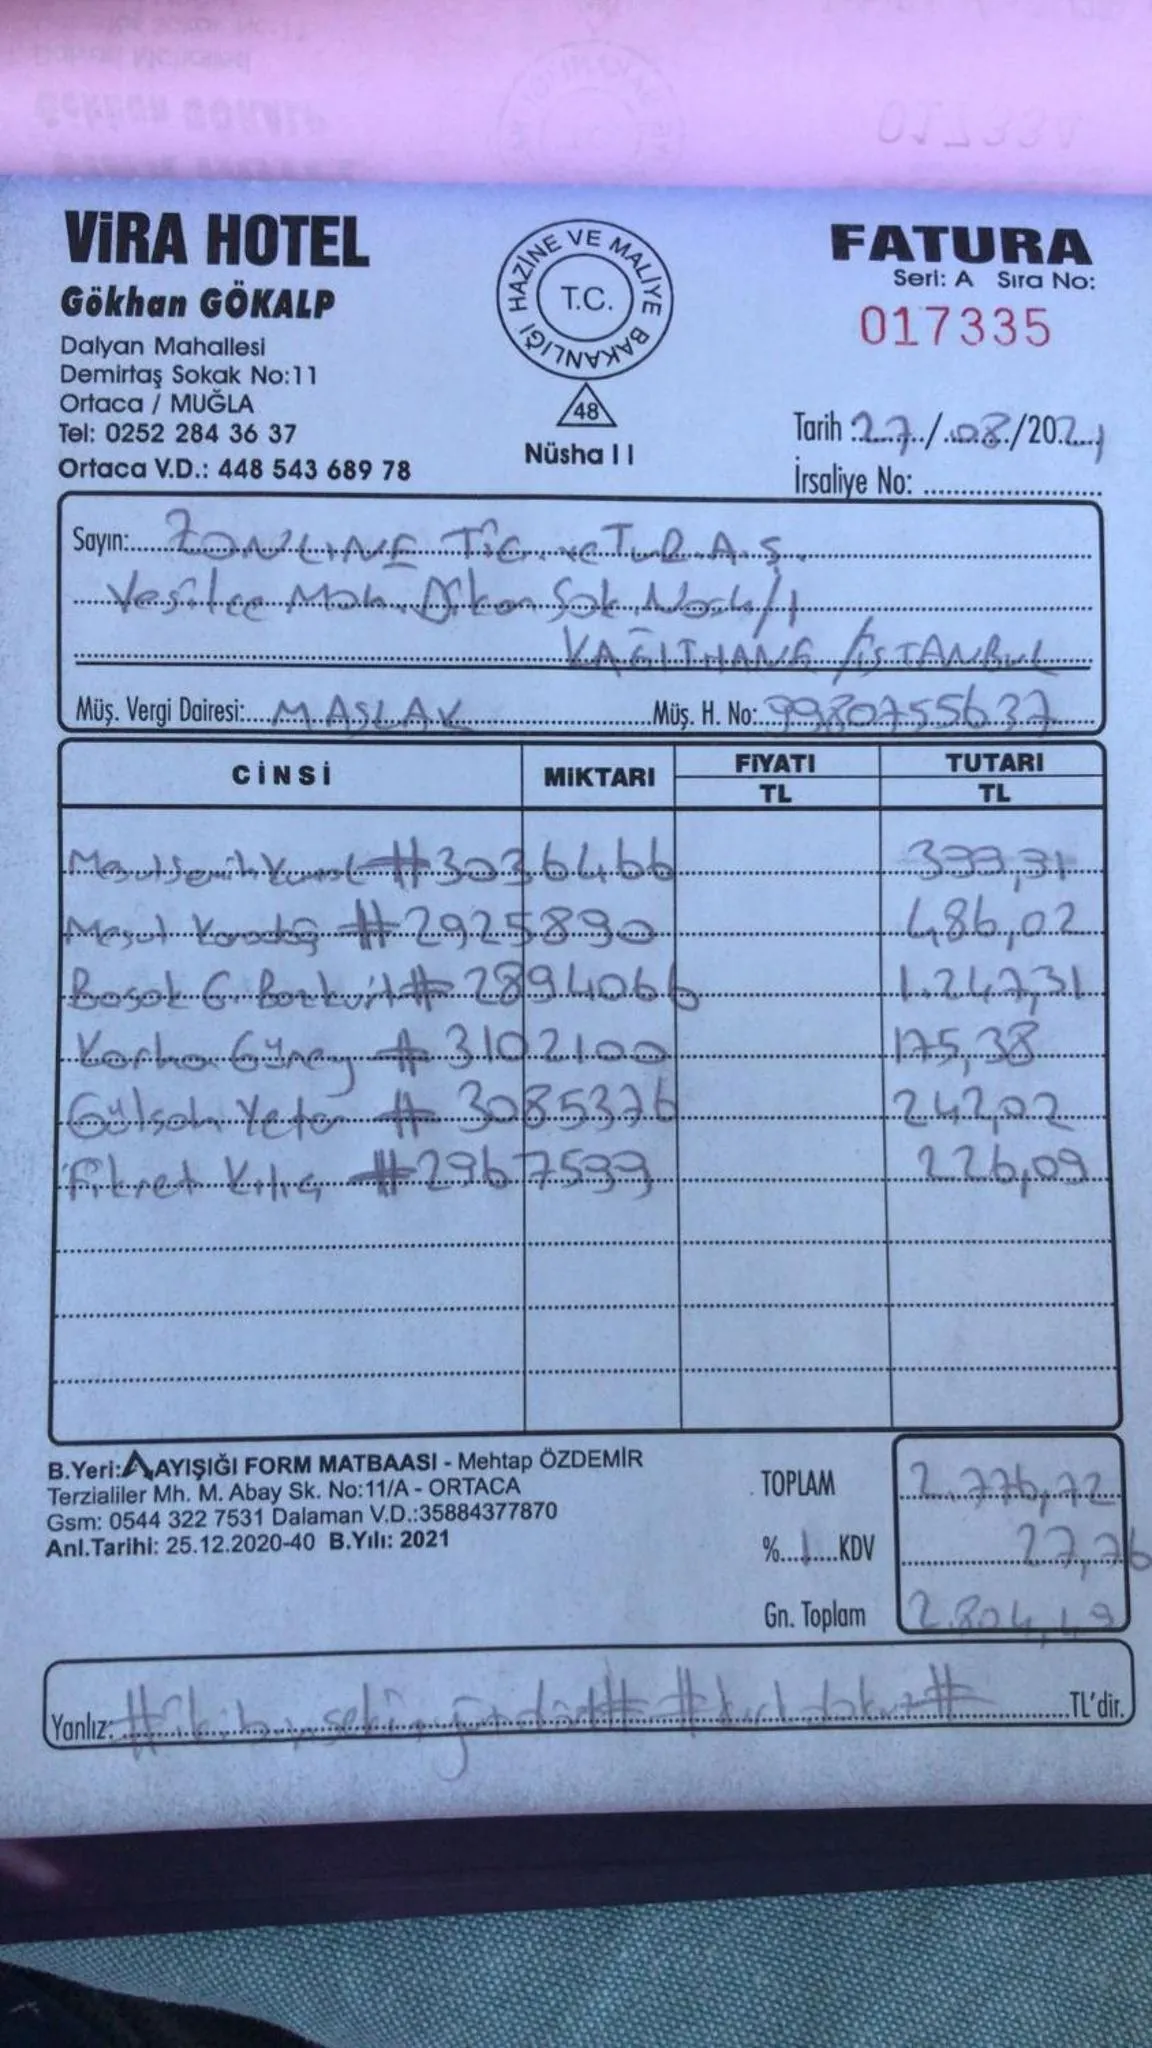 VİRA HOTEL
Gökhan GÖKALP
Dalyan Mahallesi
Demirtaş Sokak No:11
Ortaca / MUĞLA
Tel: 0252 284 36 37
Ortaca V.D.: 448 543 689 78
HAZİNE VE MALİYE BAKANLIĞI
T.C.
48
Nüsha II
FATURA
Seri: A Sıra No:
017335
Tarih 27/08/2021
İrsaliye No:
Sayın: ZONLINE TİC. ve TUR. A.Ş.
Yeşilce Mah. Sok. No
KAĞITHANE / İSTANBUL
Müş. Vergi Dairesi: MASLAK Müş. H. No: 9980755637
CİNSİ MİKTARI FİYATI TUTARI
TL TL
Mesut Semih #3036466 399,31
Mesut Karadağ #2925890 486,02
Başak G. Bozkurt #2894066 1.247,31
Güney #3102100 175,38
Gülşah Yeter #3085376 242,02
Fikret Kılıç #2967599 226,09
B.Yeri: AYIŞIĞI FORM MATBAASI - Mehtap ÖZDEMİR
Terzialiler Mh. M. Abay Sk. No:11/A - ORTACA
Gsm: 0544 322 7531 Dalaman V.D.:35884377870
Anl.Tarihi: 25.12.2020-40 B.Yılı: 2021
TOPLAM 2.776,72
%1 KDV 27,76
Gn. Toplam 2.804,49
Yanlız: #ikibinsekizyüzdört# #kırkdokuz# TL'dir.